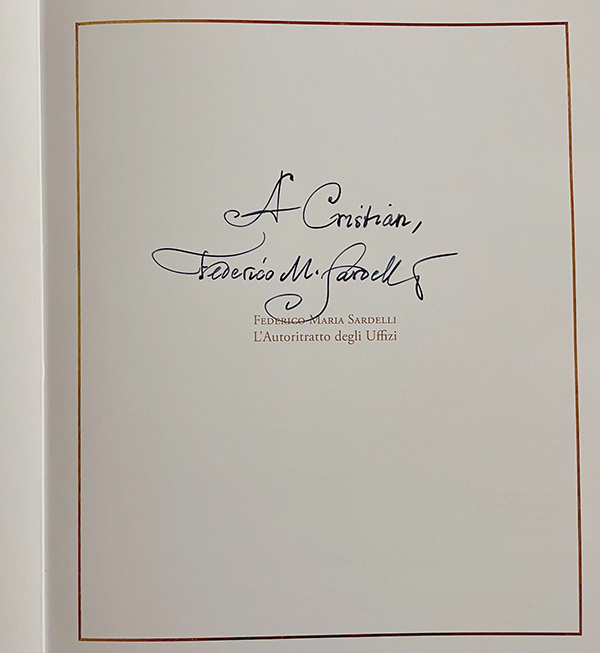 A Cristian,
Federico M. Sardelli
FEDERICO MARIA SARDELLI
L'Autoritratto degli Uffizi